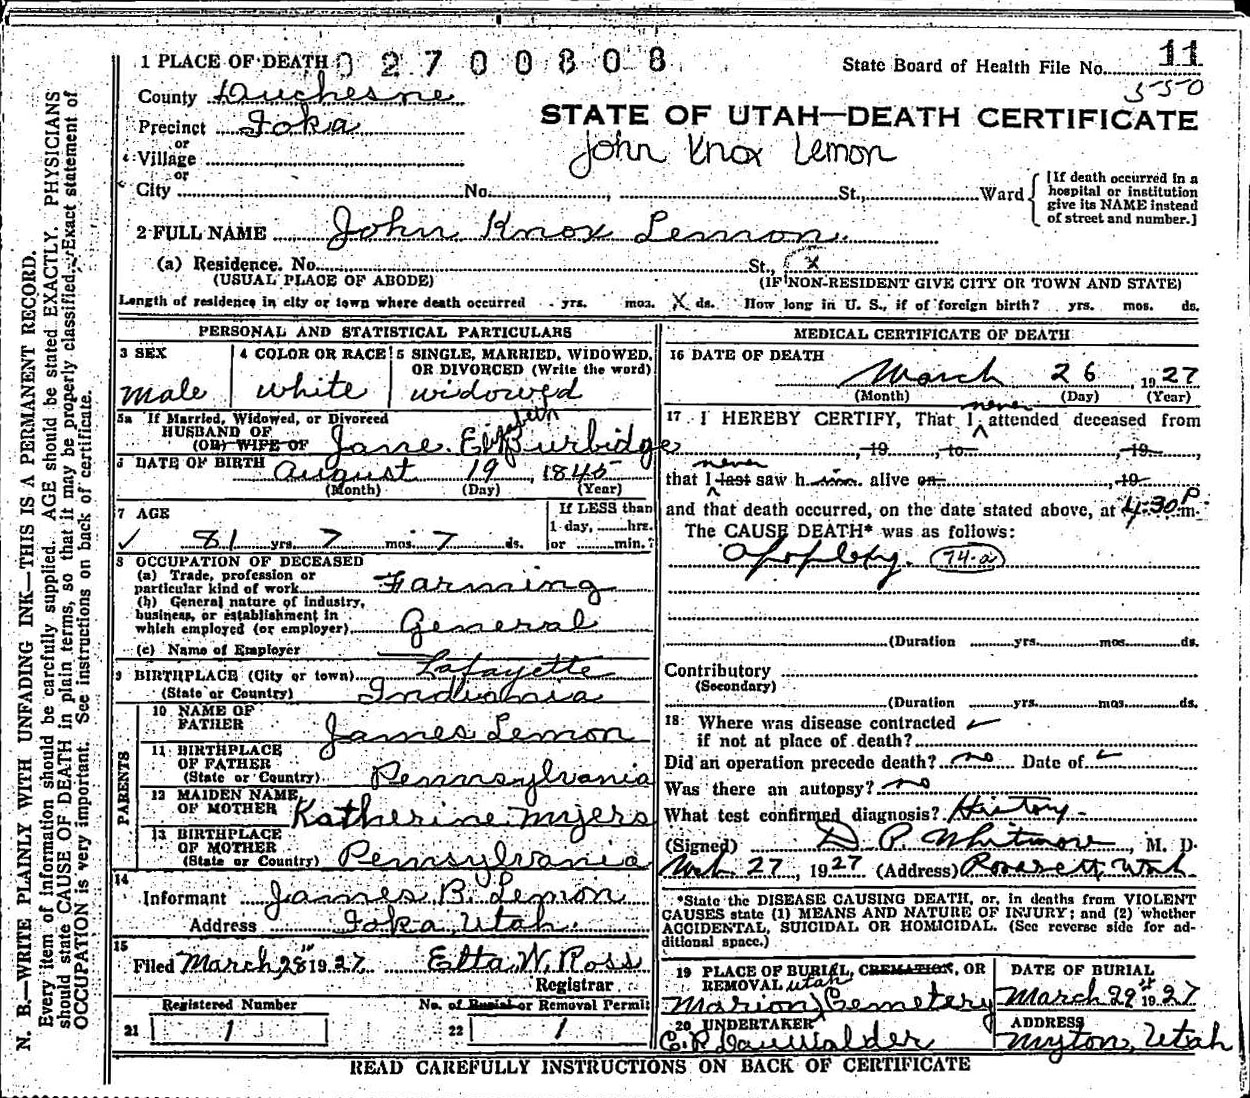 N. B.—WRITE PLAINLY WITH UNFADING INK—THIS IS A PERMANENT RECORD.
Every item of information should be carefully supplied. AGE should be stated EXACTLY. PHYSICIANS
should state CAUSE OF DEATH in plain terms, so that it may be properly classified. Exact statement of
OCCUPATION is very important. See instructions on back of certificate.
1 PLACE OF DEATH 02700808
State Board of Health File No. 11
550
County Duchesne
STATE OF UTAH—DEATH CERTIFICATE
Precinct Ioka
or
John Knox Lemon
Village
or
City No. , St., Ward
[If death occurred in a
hospital or institution
give its NAME instead
of street and number.]
2 FULL NAME John Knox Lemon
(a) Residence. No. St., x
(USUAL PLACE OF ABODE) (IF NON-RESIDENT GIVE CITY OR TOWN AND STATE)
Length of residence in city or town where death occurred yrs. mos. X ds. How long in U. S., if of foreign birth? yrs. mos. ds.
PERSONAL AND STATISTICAL PARTICULARS
3 SEX
Male
4 COLOR OR RACE
White
5 SINGLE, MARRIED, WIDOWED,
OR DIVORCED (Write the word)
widowed
5a If Married, Widowed, or Divorced
HUSBAND OF
(OR) WIFE OF Jane Elizabeth Burbidge
6 DATE OF BIRTH August 19, 1845
(Month) (Day) (Year)
7 AGE
✓ 81 yrs. 7 mos. 7 ds.
If LESS than
1 day, hrs.
or min.?
8 OCCUPATION OF DECEASED
(a) Trade, profession or
particular kind of work Farming
(b) General nature of industry,
business, or establishment in
which employed (or employer) General
(c) Name of Employer
9 BIRTHPLACE (City or town) Lafayette
(State or Country) Indiania
PARENTS
10 NAME OF
FATHER James Lemon
11 BIRTHPLACE
OF FATHER
(State or Country) Pennsylvania
12 MAIDEN NAME
OF MOTHER Katherine Myers
13 BIRTHPLACE
OF MOTHER
(State or Country) Pennsylvania
14
Informant James B. Lemon
Address Ioka, Utah.
15
Filed March 28th 1927 Etta W. Ross
Registrar
Registered Number
21 1
No. of Burial or Removal Permit
22 1
MEDICAL CERTIFICATE OF DEATH
16 DATE OF DEATH
March 26, 1927
(Month) (Day) (Year)
17 I HEREBY CERTIFY, That I never attended deceased from
, 19 , to , 19 ,
that I never last saw h im alive on , 19
and that death occurred, on the date stated above, at 4:30 P. m.
The CAUSE DEATH* was as follows:
Apoplexy. 74-a
(Duration yrs. mos. ds.
Contributory
(Secondary)
(Duration yrs. mos. ds.
18 Where was disease contracted ✓
if not at place of death?
Did an operation precede death? no Date of ✓
Was there an autopsy? no
What test confirmed diagnosis? History
(Signed) D. P. Whitmore, M. D.
Mch 27, 1927 (Address) Roosevelt, Utah.
*State the DISEASE CAUSING DEATH, or, in deaths from VIOLENT
CAUSES state (1) MEANS AND NATURE OF INJURY; and (2) whether
ACCIDENTAL, SUICIDAL OR HOMICIDAL. (See reverse side for ad-
ditional space.)
19 PLACE OF BURIAL, CREMATION, OR
REMOVAL Utah
Marion Cemetery
DATE OF BURIAL
March 29th 1927
20 UNDERTAKER
C. R.
ADDRESS
Myton, Utah
READ CAREFULLY INSTRUCTIONS ON BACK OF CERTIFICATE